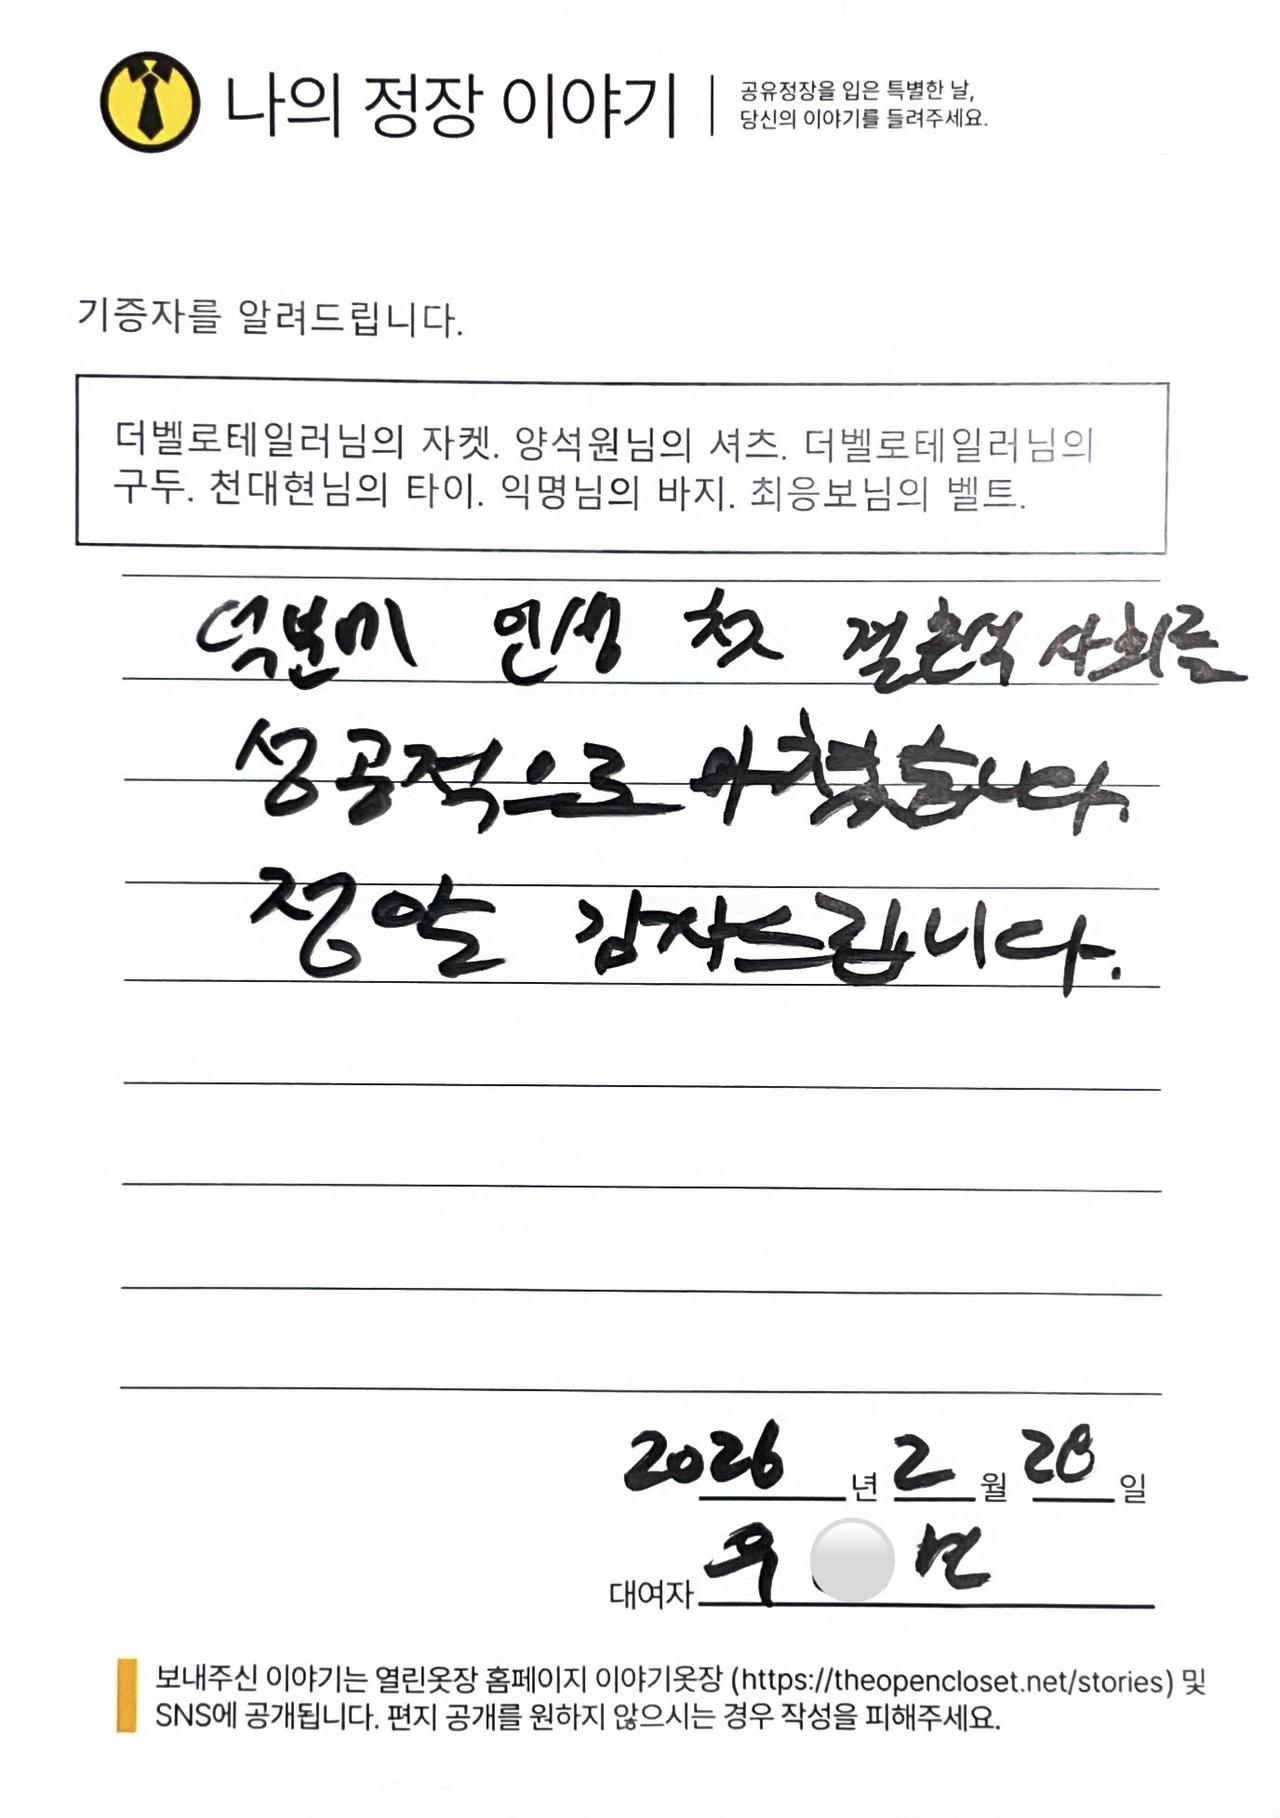 나의 정장 이야기
공유정장을 입은 특별한 날,
당신의 이야기를 들려주세요.
기증자를 알려드립니다.
더벨로테일러님의 자켓. 양석원님의 셔츠. 더벨로테일러님의
구두. 천대현님의 타이. 익명님의 바지. 최응보님의 벨트.
덕분에 인생 첫 결혼식 사회를
성공적으로 마쳤습니다.
정말 감사드립니다.
2026년 2월 28일
대여자 우 민
보내주신 이야기는 열린옷장 홈페이지 이야기옷장 (https://theopencloset.net/stories) 및
SNS에 공개됩니다. 편지 공개를 원하지 않으시는 경우 작성을 피해주세요.